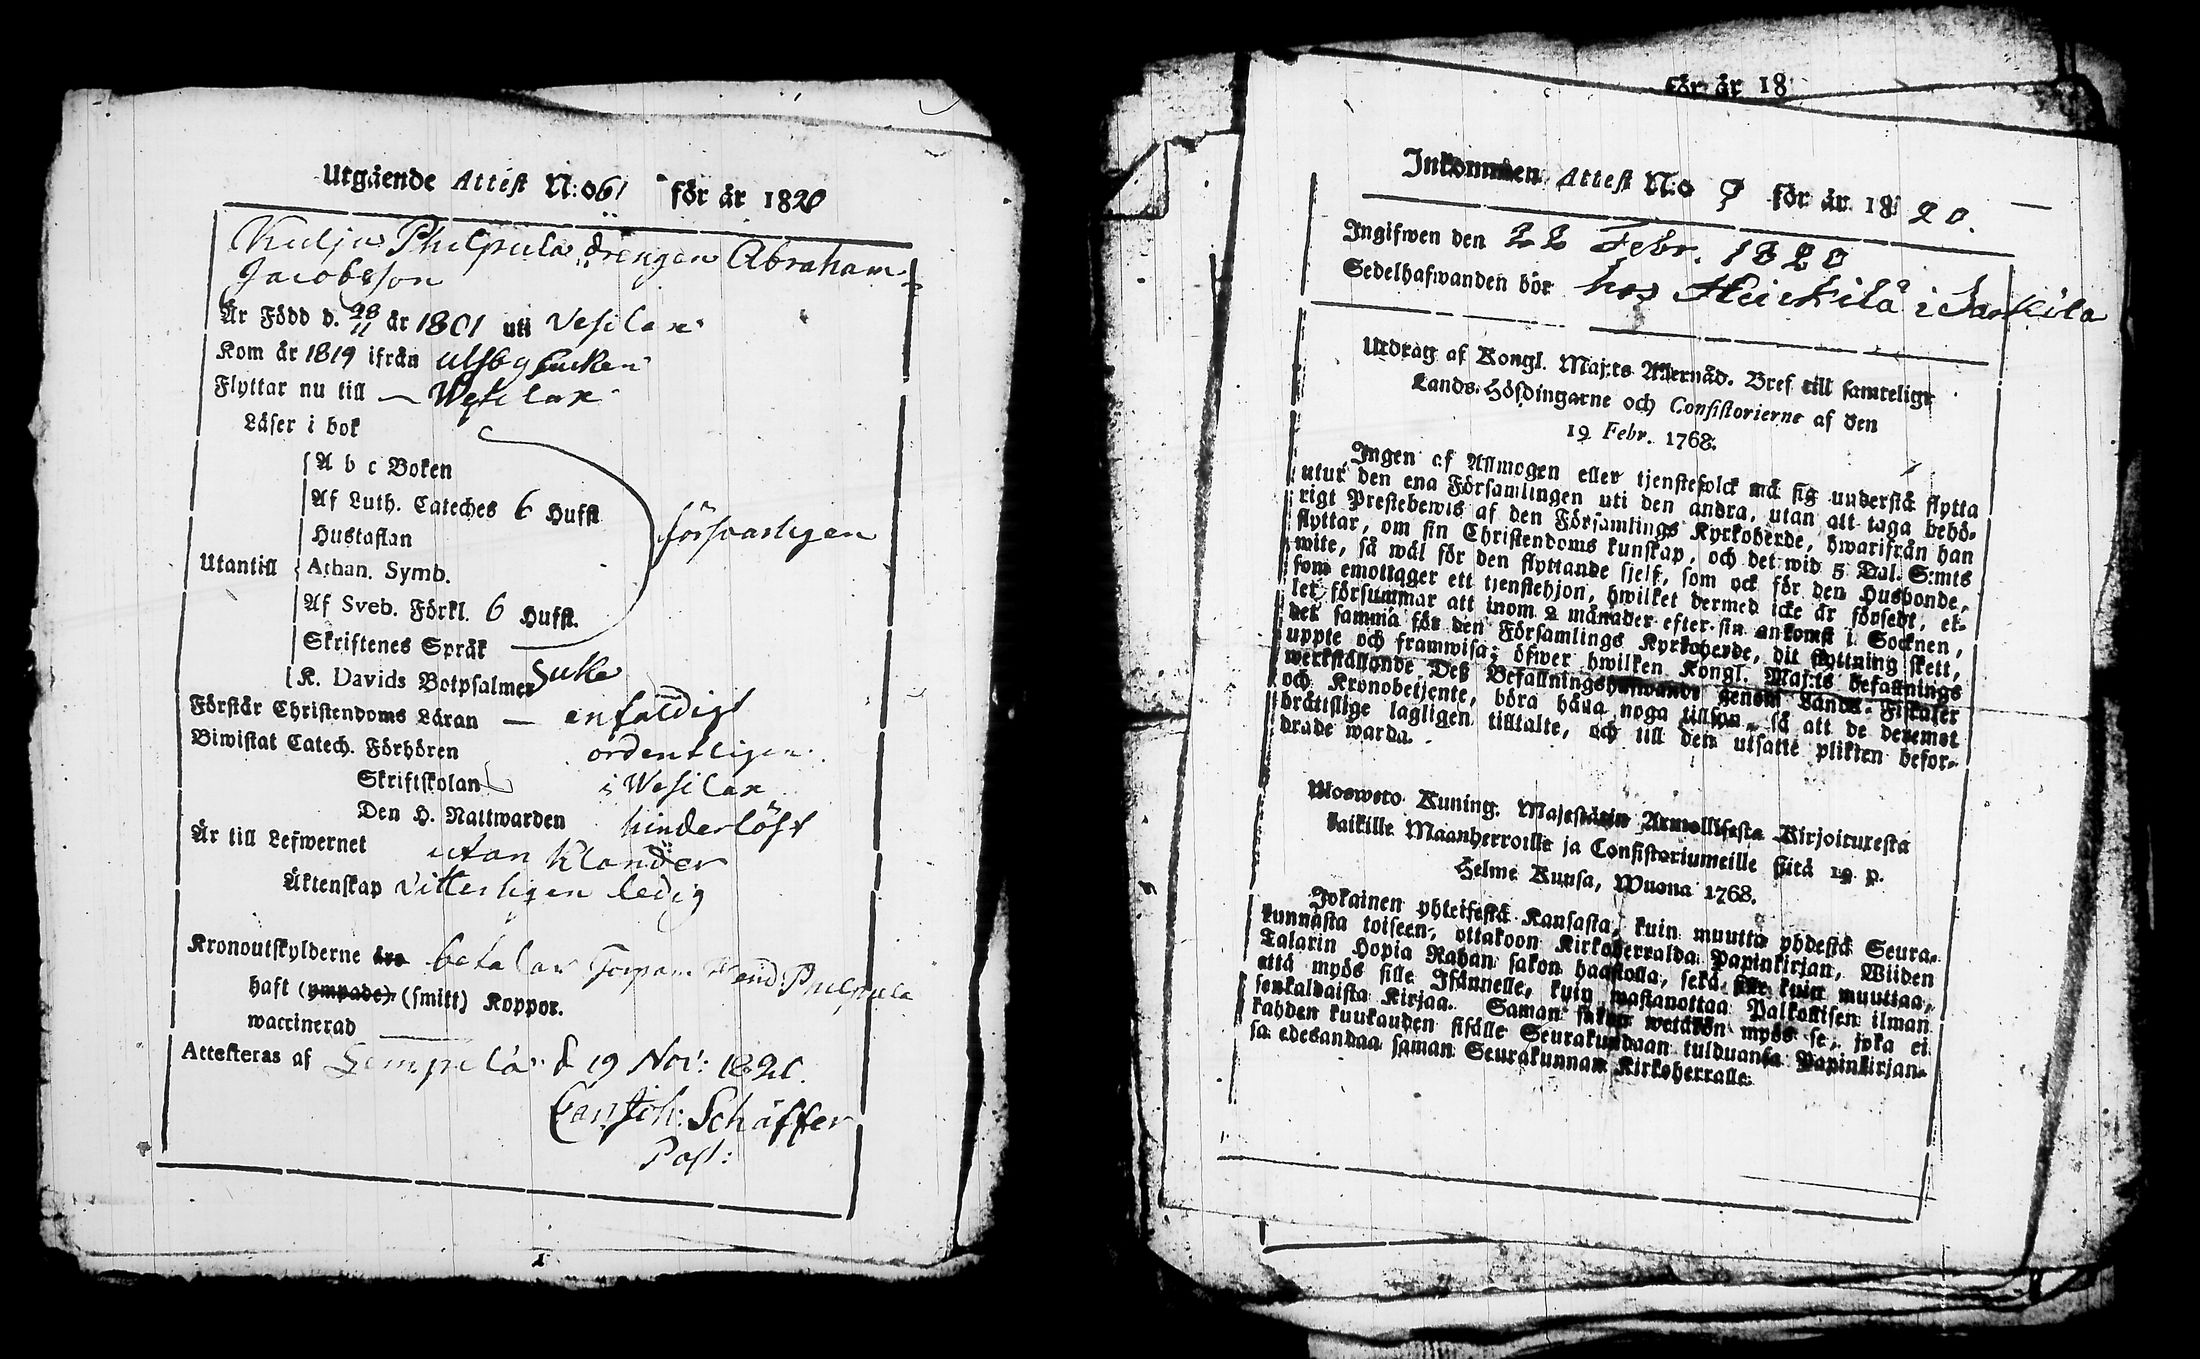 Utgående Attest N:o 61 för år 1820
Kulju Philpula drengen Abraham
Jacobsson
Är Född d. 28/11 år 1801 uti Vesilax
Kom år 1819 ifrån
Flyttar nu till — Wesilax
Läser i bok
A b c Boken
Af Luth. Cateches 6 Hufst
Hustaflan
försvarligen
Utantill
Athan. Symb.
Af Sveb. Förkl. 6 Hufst.
Skriftenes Språk
K. Davids Botpsalmer
Förstår Christendoms Läran — enfaldigt
Biwistat Catech. Förhören ordentligen
Skriftskolan i Wesilax
Den H. Nattwarden hinderlöst
Är till Lefwernet utan Klander
Äktenskap Vitterligen ledig
Kronoutskylderne äro betalar Philpula
haft (ympade) (smitt) Koppor.
waccinerad
Attesteras af Lempelä d 19 Nov: 1820.
Schäffer
Past:
för år 18
Inkommen Attest N:o för år 18 20.
Ingifwen den 22 Febr. 1820
Sedelhafwanden bör hos Heickilä i
Utdrag af Kongl. Maj:ts Allernåd. Bref till samtelige
Lands-Höfdingarne och Consistorierne af den
19 Febr. 1768.
Ingen af Allmogen eller tjenstefolck må sig understå flytta
utur den ena Församlingen uti den andra, utan att taga behö-
rigt Prestebewis af den Församlings Kyrkoherde, hwarifrån han
flyttar, om sin Christendoms kunskap, och det wid 5 Dal. S:mts
wite, så wäl för den flyttande sjelf, som ock för den Husbonde,
som emottager ett tjenstehjon, hwilket dermed icke är försedt, el-
ler försummar att inom 2 månader efter sin ankomst i Socknen,
det samma för den Församlings Kyrkoherde, dit flyttning skett,
uppte och framwisa; öfwer hwilken Kongl. Maj:ts befallnings
werkställande Deß Befallningshafwande genom Lands-Fiskaler
och Kronobetjente, böra hafwa noga tillsyn, så att de deremot
bråttslige lagligen tilltalte, och till den utsatte plikten befor-
drade warda.
Ulosweto Kuning. Majestätin Armollisesta Kirjoituresta
kaikille Maanherroille ja Consistoriumeille sitä 19 p.
Helme Kuusa, Wuona 1768.
Jokainen yhteisestä Kansasta, kuin muutta yhdestä Seura-
kunnasta toiseen, ottakoon Kirkoherralda Papinkirjan, Wiiden
Talarin Hopia Rahan sakon haastolla, sekä sille kuin muuttaa,
että myös sille Isännelle, kuin wastanottaa Palkollisen ilman
senkaldaista Kirjaa. Saman sakon wetäkön myös se, joka ei
kahden kuukauden sisälle Seurakundaan tulduansa Papinkirjan-
sa edesandaa saman Seurakunnan Kirkoherralle.